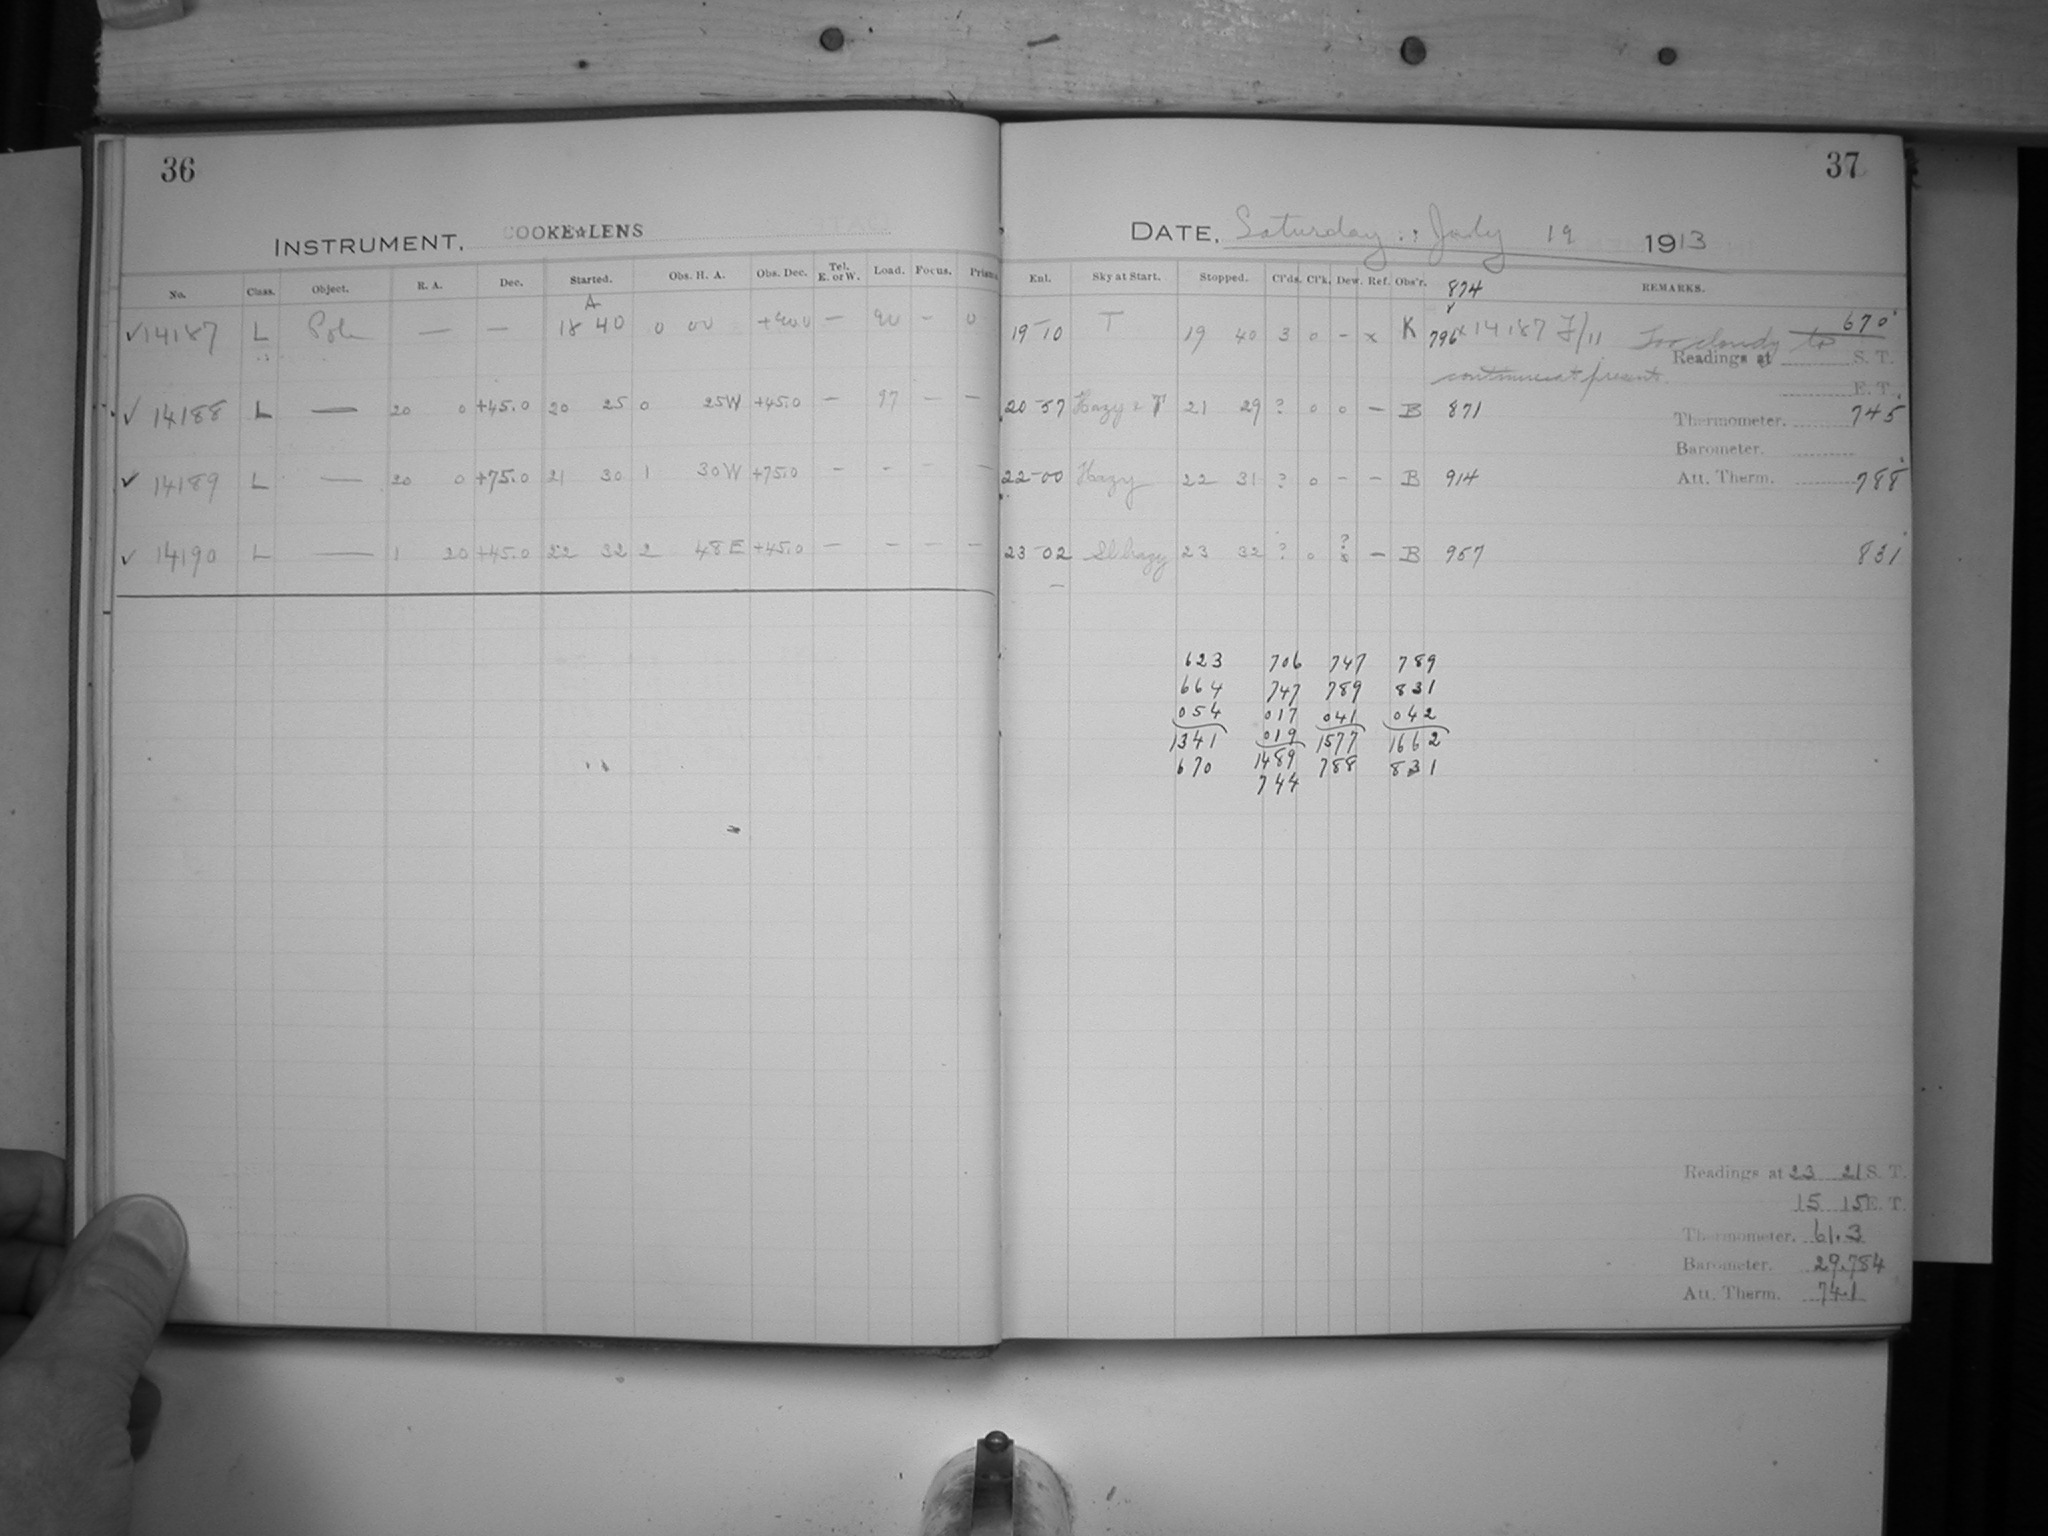 36
INSTRUMENT. COOKE☆LENS
No. Class. Object. R. A. Dec. Started. Obs. H. A. Obs. Dec. Tel. E. or W. Load. Focus. Prism
A
✓14187 L Pole — — 18 40 0 00 +90.0 — 90 - 0
✓ 14188 L — 20 0 +45.0 20 25 0 25W +45.0 — 97 — —
✓ 14189 L — 20 0 +75.0 21 30 1 30W +75.0 - - - —
✓ 14190 L — 1 20 +45.0 22 32 2 48E +45.0 — — — —
37
DATE. Saturday : July 19 1913
Enl. Sky at Start. Stopped. Cl'ds. Cl'k. Dew. Ref. Obs'r. 874 REMARKS.
19-10 T 19 40 3 0 - x K 796 x14187 F/11 Too cloudy to 670
Readings at S. T.
continue at present.
E. T.
20-57 Hazy & T 21 29 ? 0 0 — B 871 Thermometer. 745
Barometer.
22-00 Hazy 22 31 ? 0 - - B 914 Att. Therm. 788
23-02 Sl. hazy 23 32 ? 0 ? — B 957 831
623 706 747 789
664 747 789 831
054 017 041 042
1341 019 1577 1662
670 1489 788 831
744
Readings at 23 21 S. T.
15 15 E. T.
Thermometer. 61.3
Barometer. 29.784
Att. Therm. 74.1